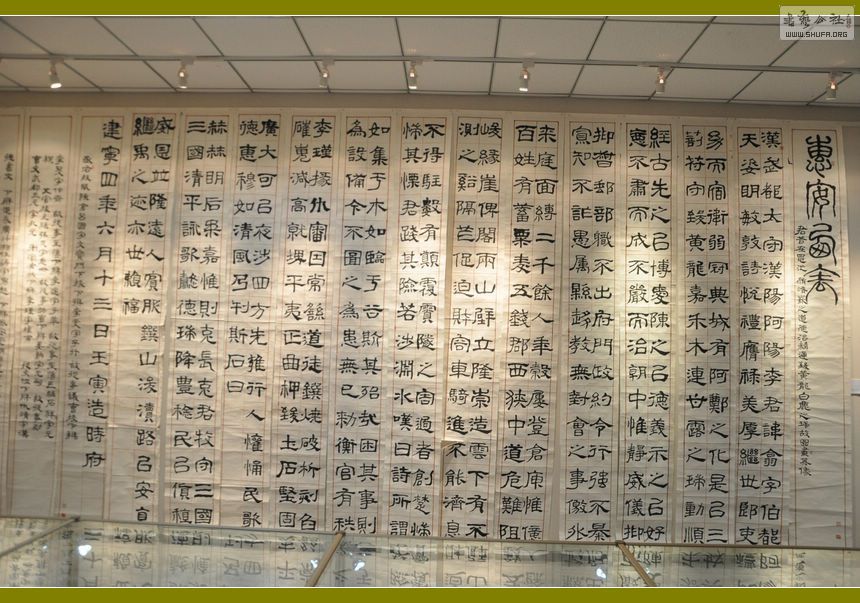 書藝公社
WWW.SHUFA.ORG
惠安西表
君昔在黽池脩崤嶔之道德治精通致黃龍白鹿之瑞故圖畫其像
漢武都太守漢陽阿陽李君諱翕字伯都
天姿明敏敦詩悅禮膺祿美厚繼世郎吏
幼而宿衛弱冠典城有阿鄭之化是以三
剖符守致黃龍嘉禾木連甘露之瑞動順
經古先之以博愛陳之以德義示之以好
惡不肅而成不嚴而治朝中惟靜威儀抑
抑督郵部職不出府門政約令行強不暴
寡知不詐愚屬縣趨教無對會之事徼外
來庭面縛二千餘人年穀屢登倉庾惟億
百姓有蓄粟麥五錢郡西狹中道危難阻
峻緣崖俾閣兩山壁立隆崇造雲下有不
測之谿阨笮促迫財容車騎進不能濟息
不得駐數有顛覆霣隧之害過者創楚惴
惴其慄君踐其險若涉淵水嘆曰詩所謂
如集于木如臨于谷斯其殆哉困其事則
為設備今不圖之為患無已勑衡官有秩
李瑾掾仇審因常繇道徒鐉燒破析刻臽
磪嵬減高就埤平夷正曲柙致土石堅固
廣大可以夜涉四方无雍行人懽悀民歌
德惠穆如清風乃刊斯石曰
赫赫明后柔嘉惟則克長克君牧守三國
三國清平詠歌懿德瑞降豐稔民以貨稙
威恩並隆遠人賓服鐉山浚瀆路以安直
繼禹之迹亦世賴福
建寧四年六月十三日壬寅造時府